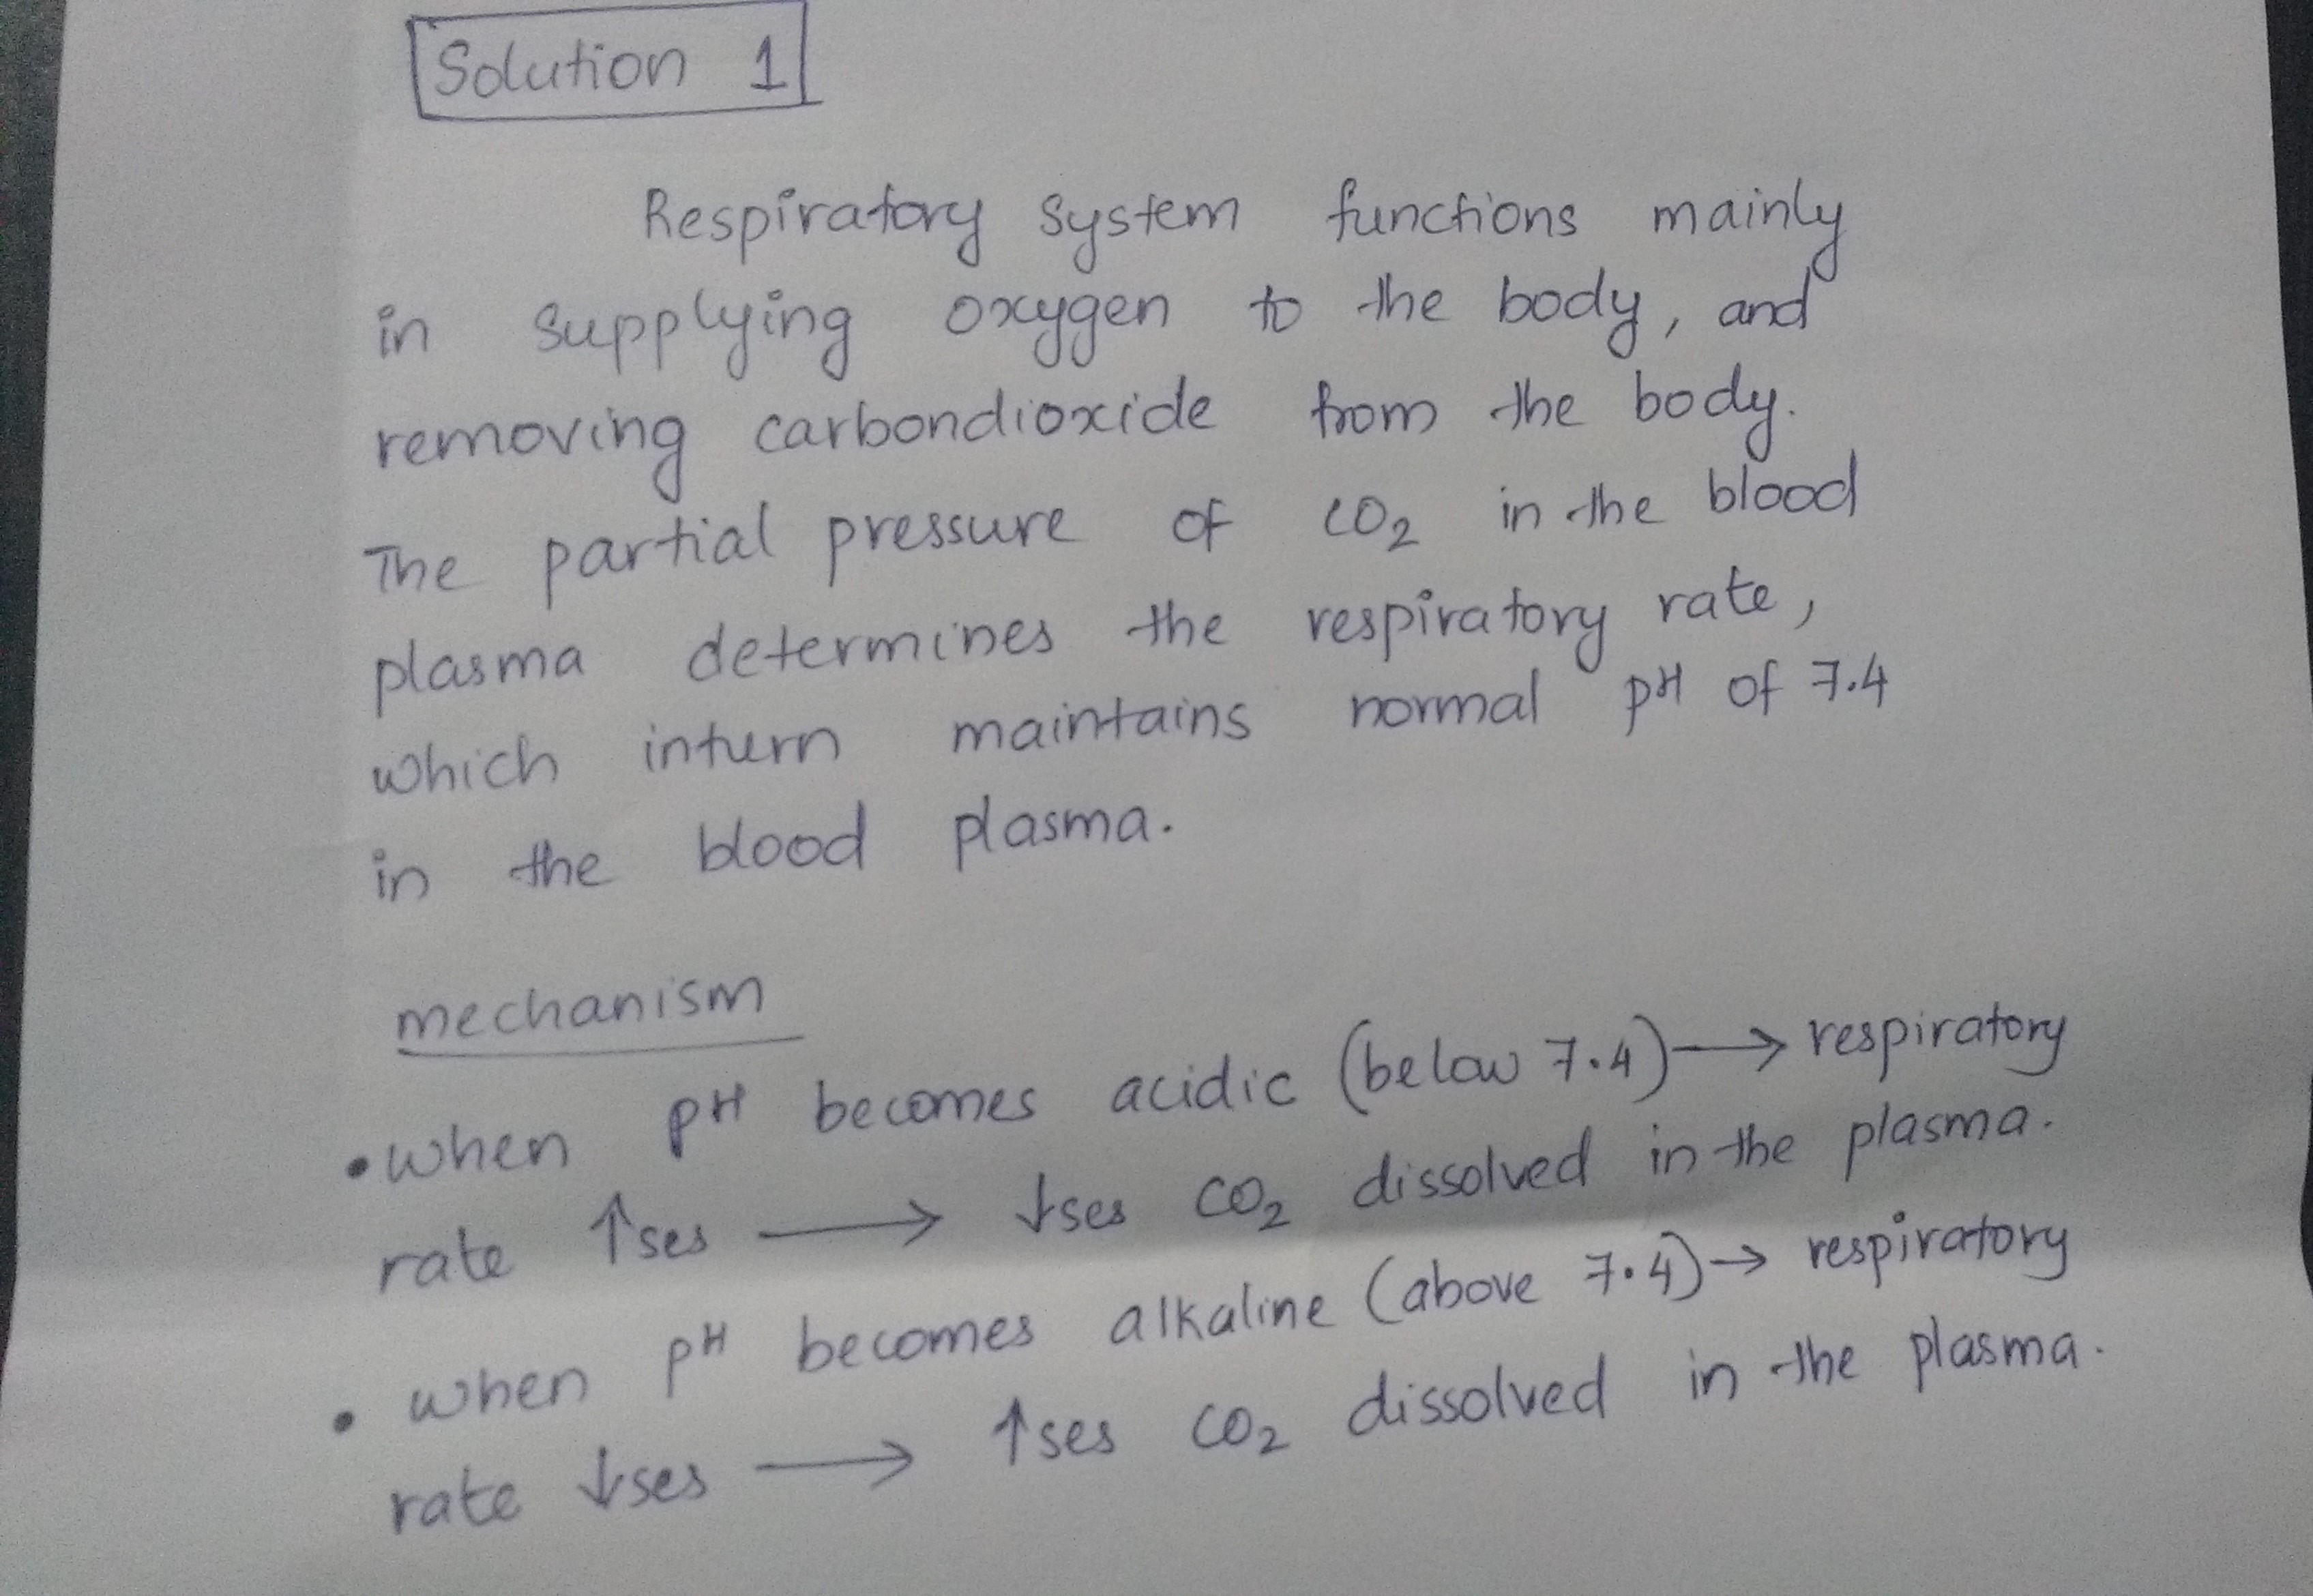 Solution 1
Respiratory system functions mainly
in supplying oxygen to the body, and
removing carbondioxide from the body.
The partial pressure of CO₂ in the blood
plasma determines the respiratory rate,
which inturn maintains normal pH of 7.4
in the blood plasma.
mechanism
• When pH becomes acidic (below 7.4) → respiratory
rate ↑ses → ↓ses CO₂ dissolved in the plasma.
• when pH becomes alkaline (above 7.4) → respiratory
rate ↓ses → ↑ses CO₂ dissolved in the plasma.